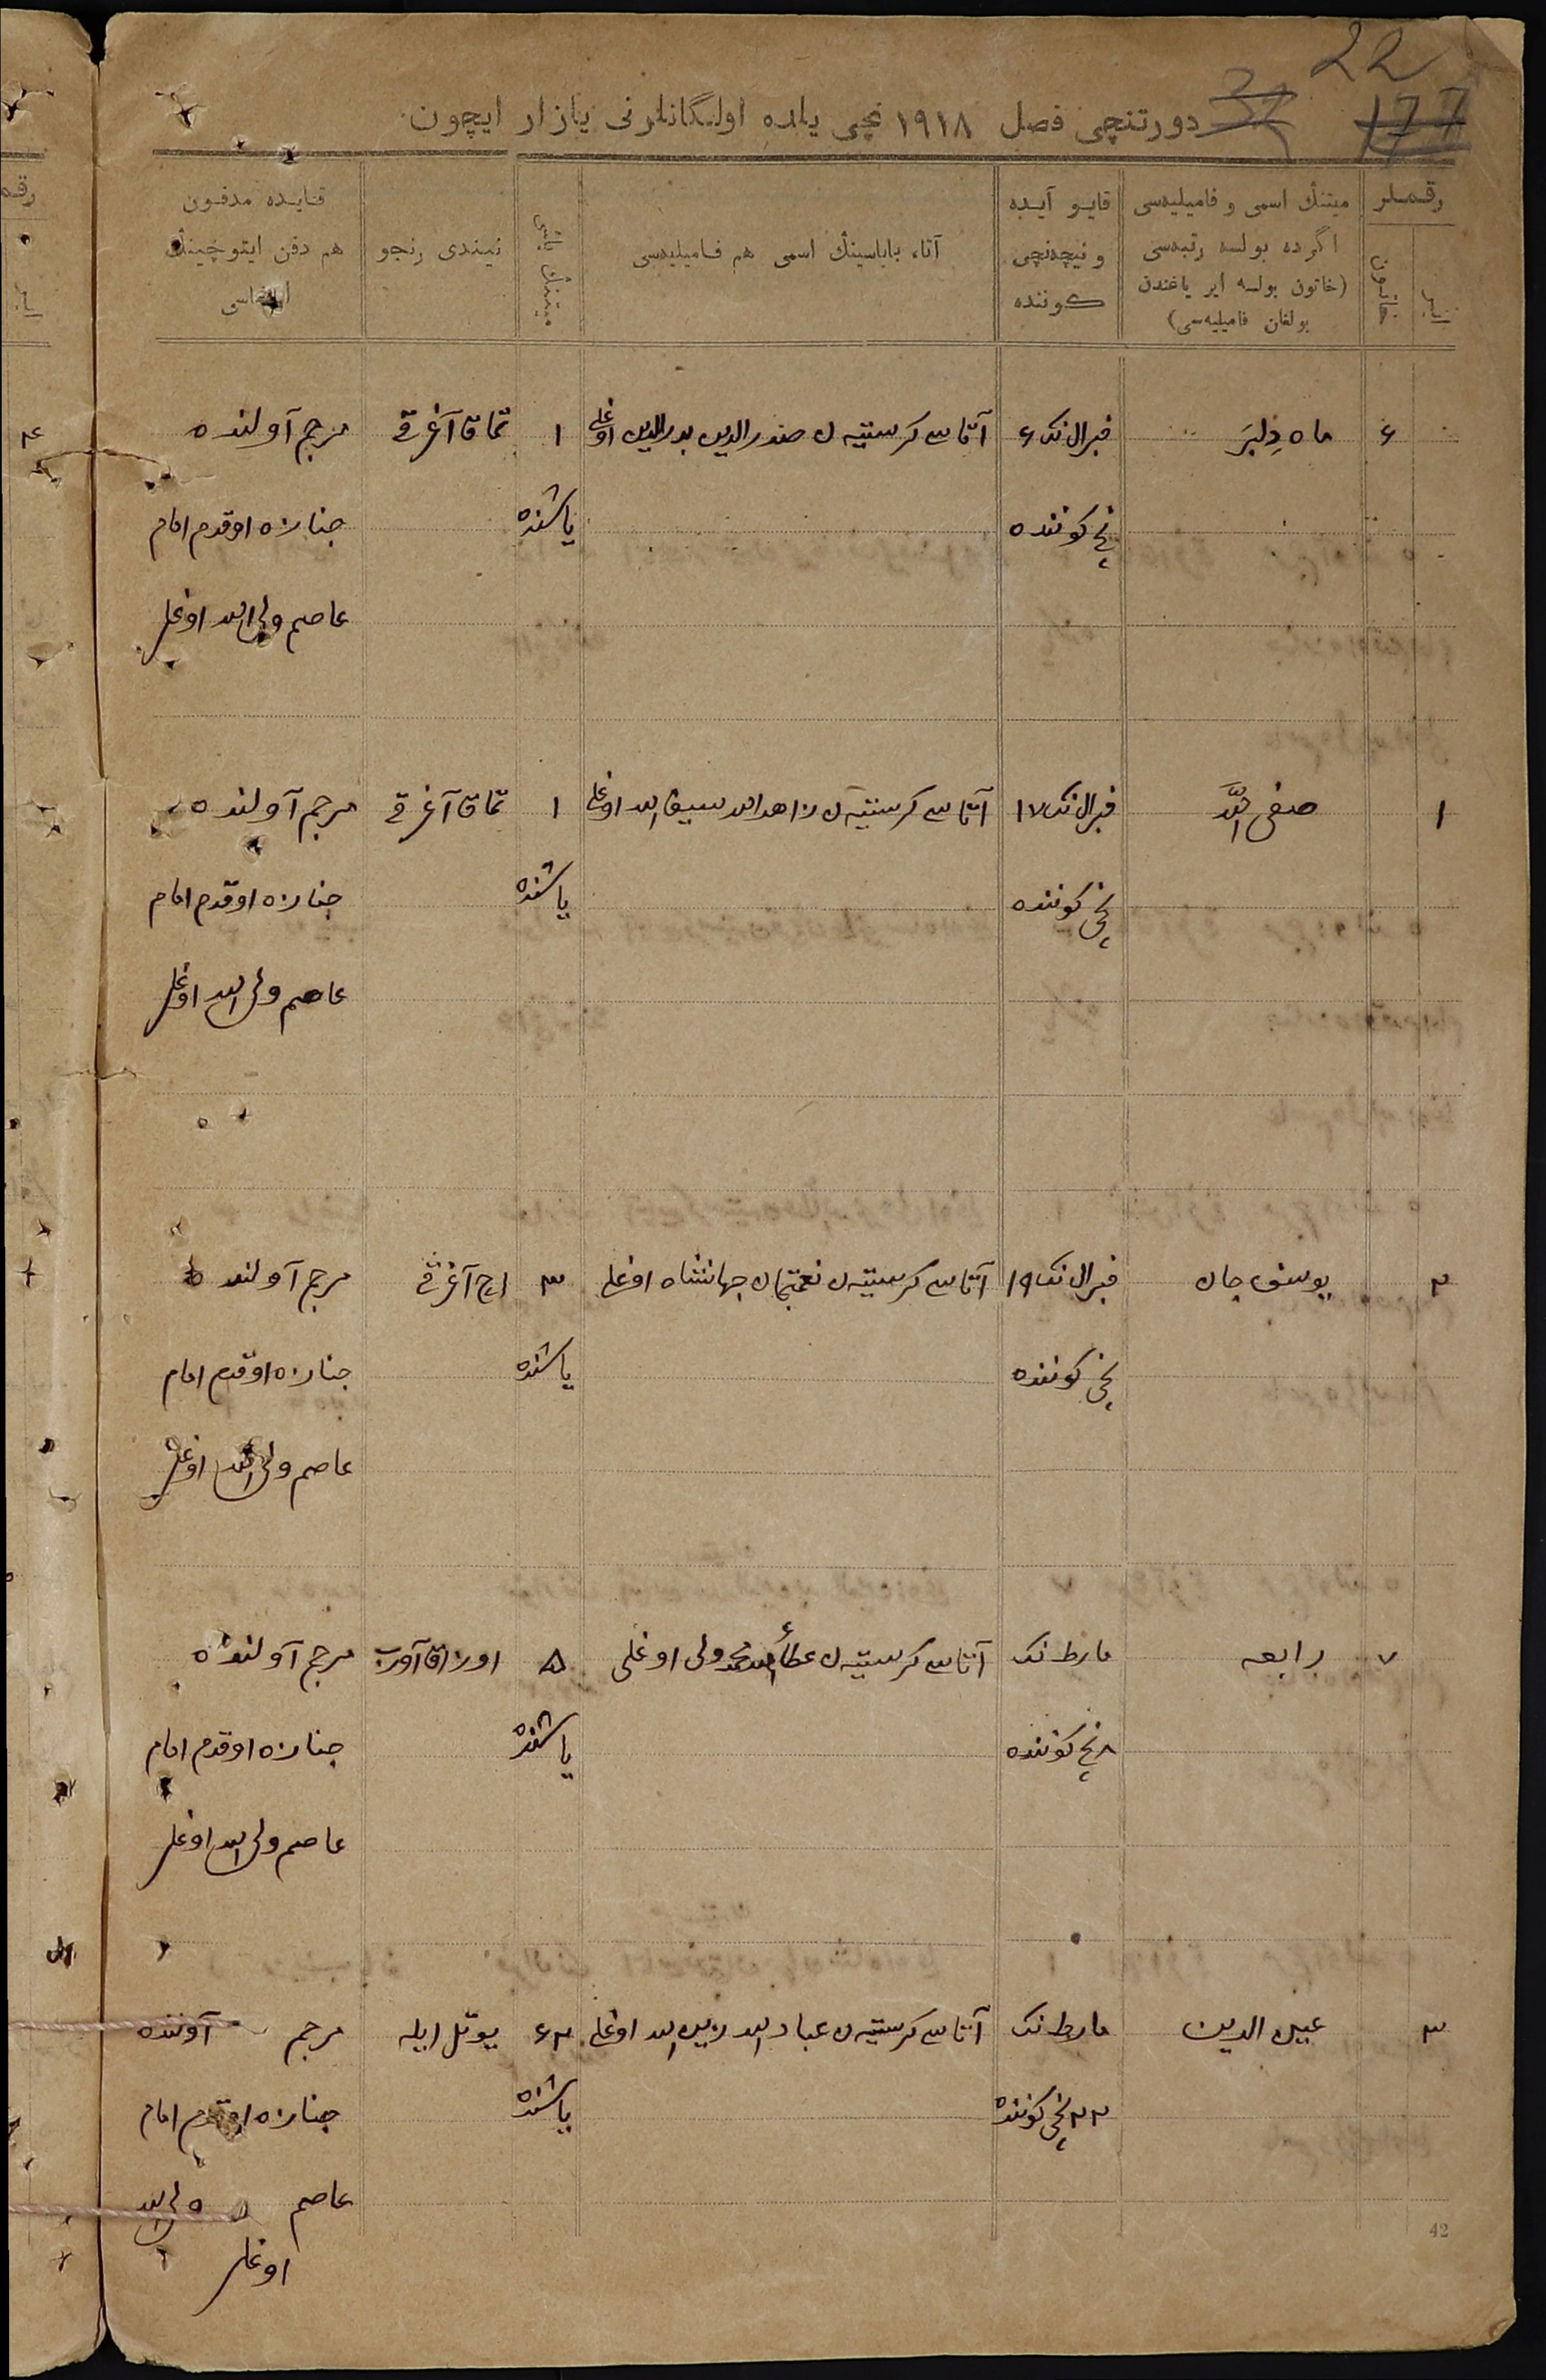 22
37
177
دورتنچی فصل ۱۹۱۸ نچی یلده اولـگانلرنی یازار ایچون
رقملر
ایر
خاتون
میتنڭ اسمی و فامیلیه‌سی
اگرده بولسه رتبه‌سی
(خاتون بولسه ایر یاغندن
بولغان فامیلیه‌سی)
قایو آیده
و نیچه‌نچی
كوننده
آتا، باباسینڭ اسمی هم فامیلیه‌سی
میتنڭ یاشی
نیندی رنجو
قایده مدفون
هم دفن ایتوچینڭ
امضاسی
۶ ماه دِلبَر فبرال نک ۶ آتاسی کرستیه ن صدرالدین بدرالدین اوغلی ۱ تماق آغرقی مرجم آولنده
نچی کوننده یاشنده جنازه اوقدم امام
عاصم ولی الله اوغلی
۱ صفی اللّه فبرال نک ۱۷ آتاسی کرستیه ن زاهدالله سیف الله اوغلی ۱ تماق آغرقی مرجم آولنده
نچی کوننده یاشنده جنازه اوقدم امام
عاصم ولی الله اوغلی
۲ یوسف جان فبرال نک ۱۹ آتاسی کرستیه ن نعمتجان جهانشاه اوغلی ۳ اچ آغرقی مرجم آولنده
نچی کوننده یاشنده جنازه اوقدم امام
عاصم ولی الله اوغلی
۷ رابعه مارط نک آتاسی کرستیه ن عطاء الله محمدولی اوغلی ۵ اوزاق آورب مرجم آولنده
۸ نچی کوننده یاشنده جنازه اوقدم امام
عاصم ولی الله اوغلی
۳ عین الدین مارط نک آتاسی کرستیه ن عبادالله زین الله اوغلی ۶۲ یوتل ایله مرجم آولنده
۲۲ نچی کوننده یاشنده جنازه اوقدم امام
عاصم ولی الله
اوغلی
42